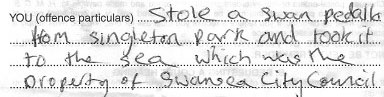 YOU (offence particulars) Stole a swan pedallo
from singleton park and took it
to the sea which was the
property of Swansea City Council